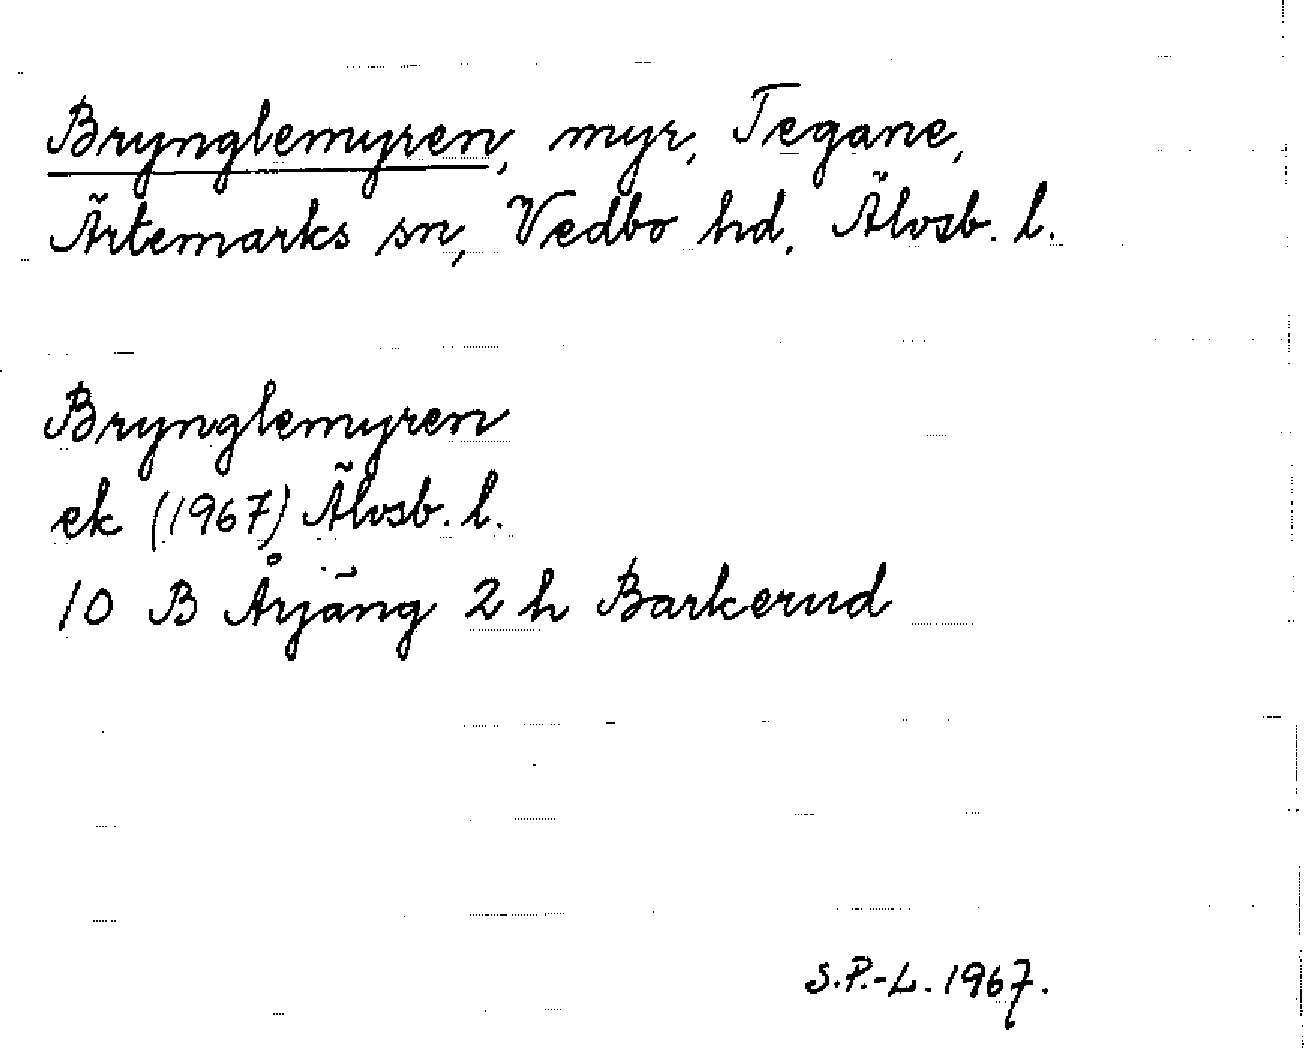 Brynglemyren, myr, Tegane,
Ärtemarks sn, Vedbo hd, Älvsb. l.
Brynglemyren
ek (1967) Älvsb. l.
10 B Årjäng 2 h Barkerud
S.P.-L. 1967.